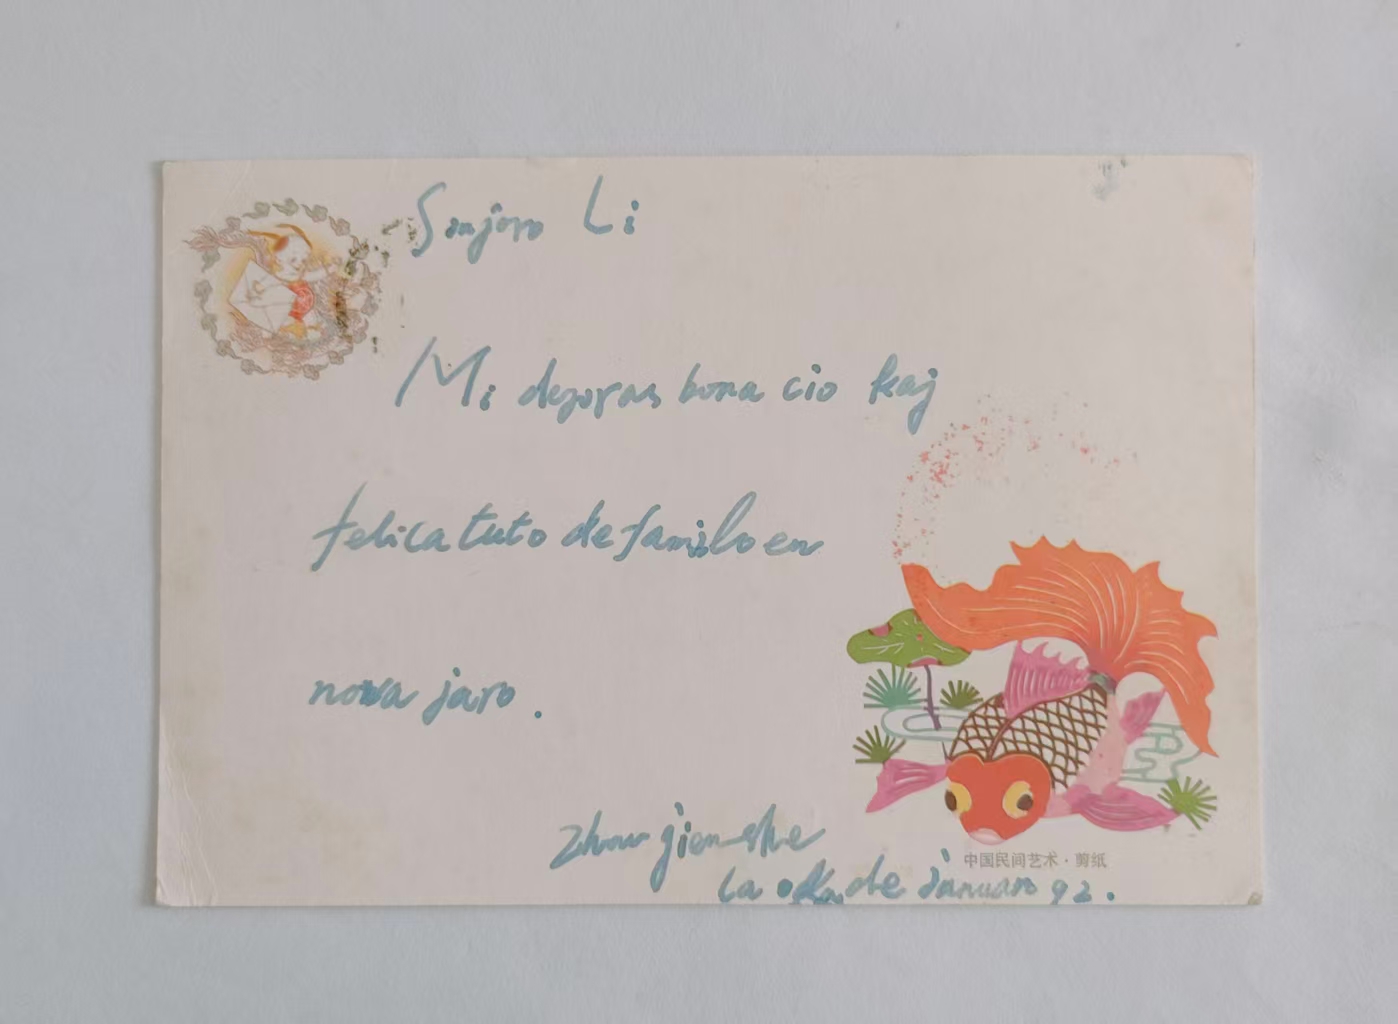 Sinjoro Li
Mi deziras bona cio kaj
felica tuto de familo en
nova jaro.
Zhou jien-she
la oka de januar 92.
中国民间艺术·剪纸